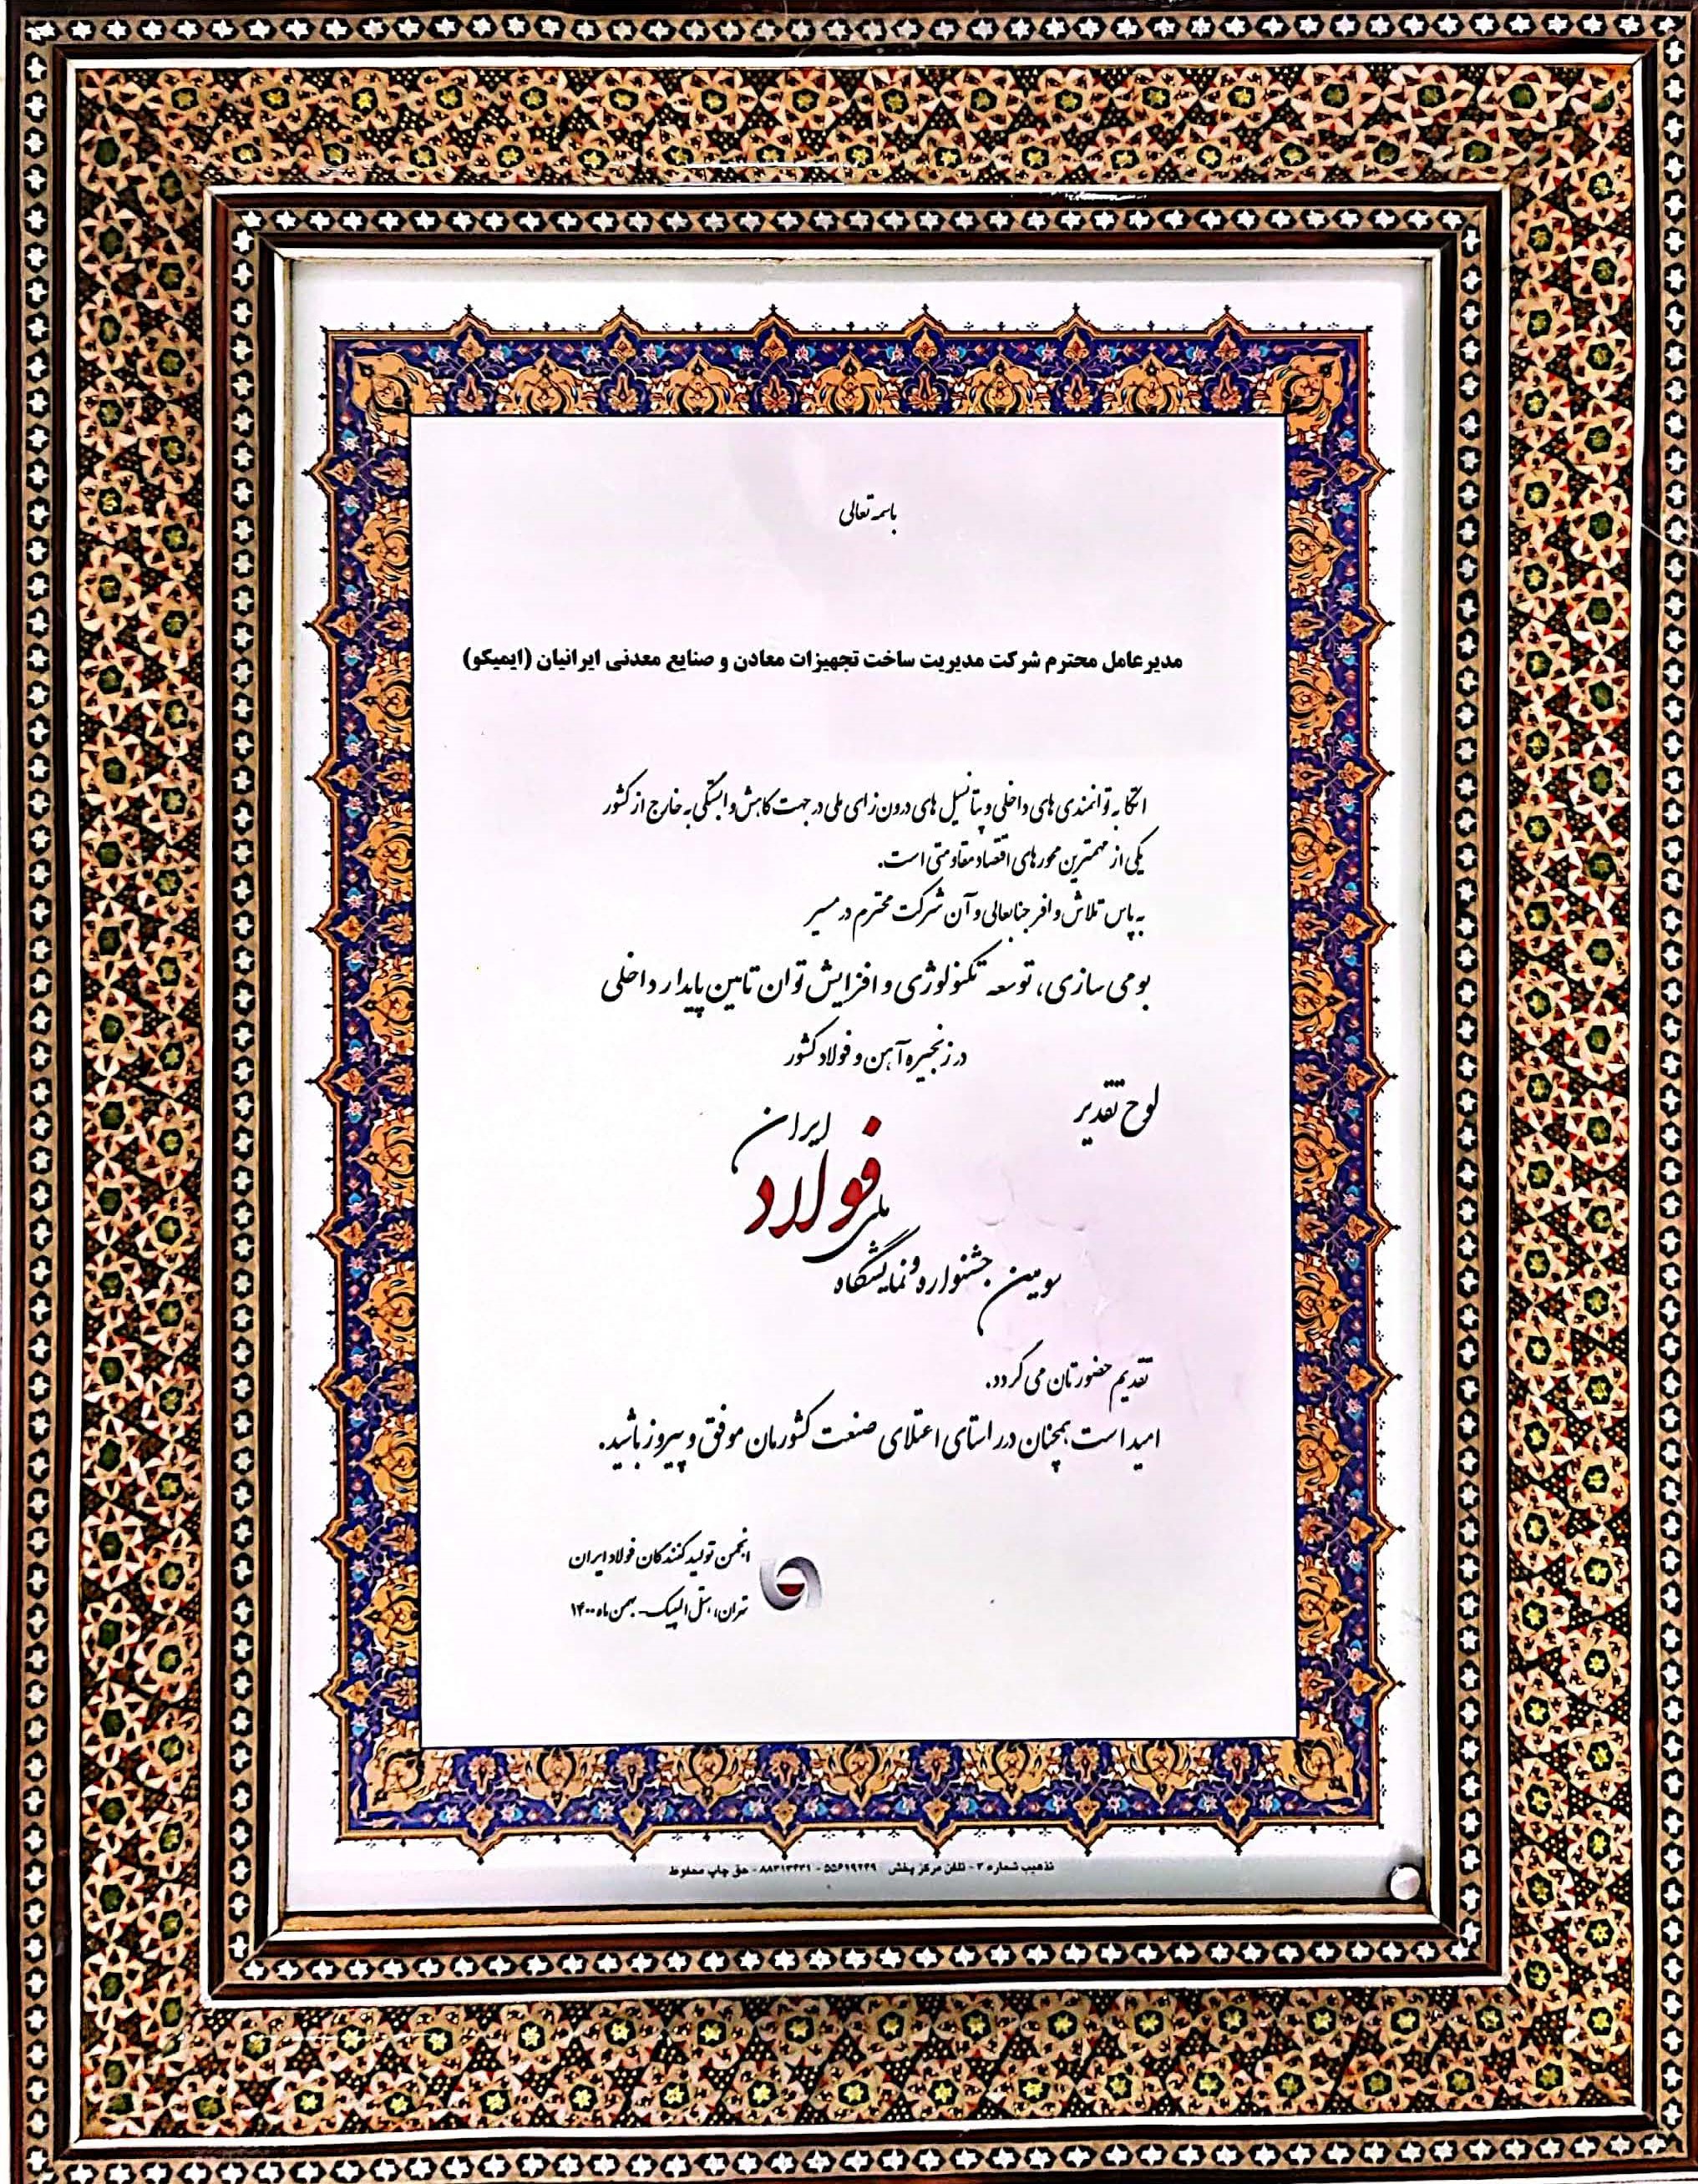 باسمه تعالی
مدیر عامل محترم شرکت مدیریت ساخت تجهیزات معادن و صنایع معدنی ایرانیان (ایمیکو)
اتکا به توانمندی های داخلی و پتانسیل های درون زای ملی در جهت کاهش وابستگی به خارج از کشور
یکی از مهمترین محورهای اقتصاد مقاومتی است.
به پاس تلاش وافر جنابعالی و آن شرکت محترم در مسیر
بومی سازی، توسعه تکنولوژی و افزایش توان تامین پایدار داخلی
در زنجیره آهن و فولاد کشور
لوح تقدیر
سومین جشنواره و نمایشگاه
ملی
فولاد
ایران
تقدیم حضورتان می گردد.
امید است همچنان در راستای اعتلای صنعت کشورمان موفق و پیروز باشید.
انجمن تولید کنندگان فولاد ایران
تهران، هتل المپیک - بهمن ماه ۱۴۰۰
تذهیب شماره ۲ - تلفن مرکز پخش - حق چاپ محفوظ